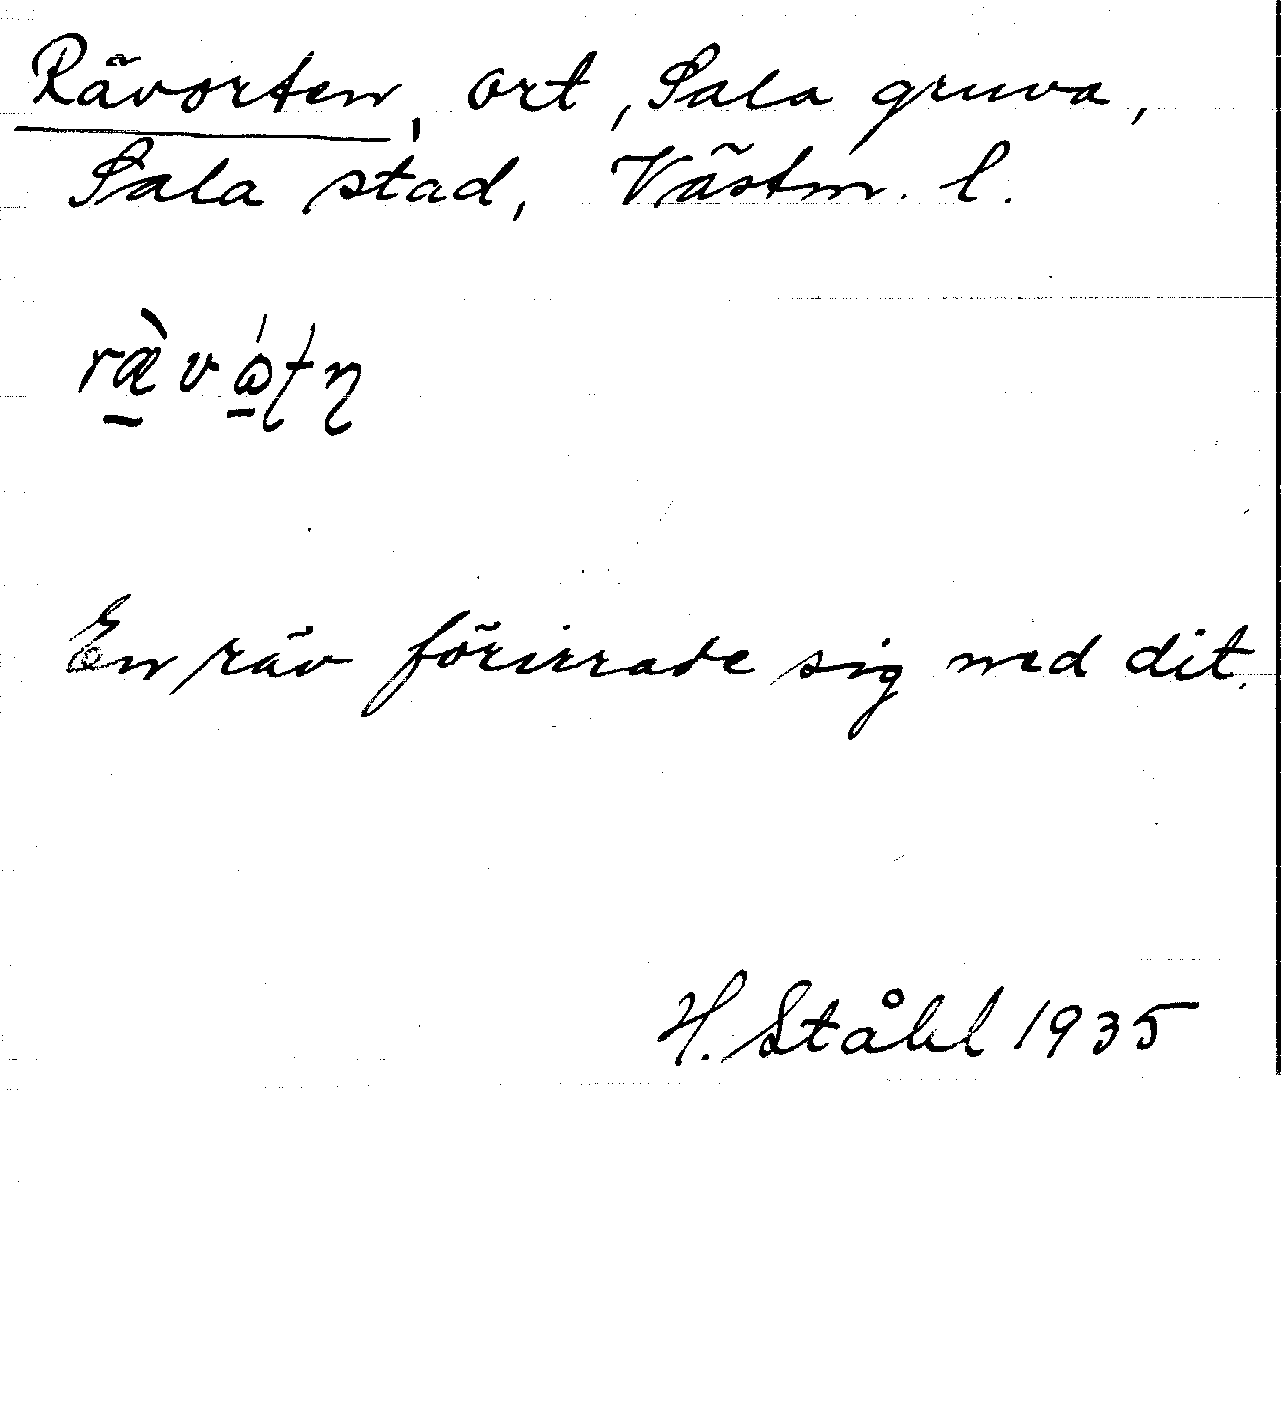 Rävorten, ort, Sala gruva,
Sala stad, Västm. l.
ræ̠̀vώ̠ʈɳ
En räv förirrade sig ned dit.
H. Ståhl 1935